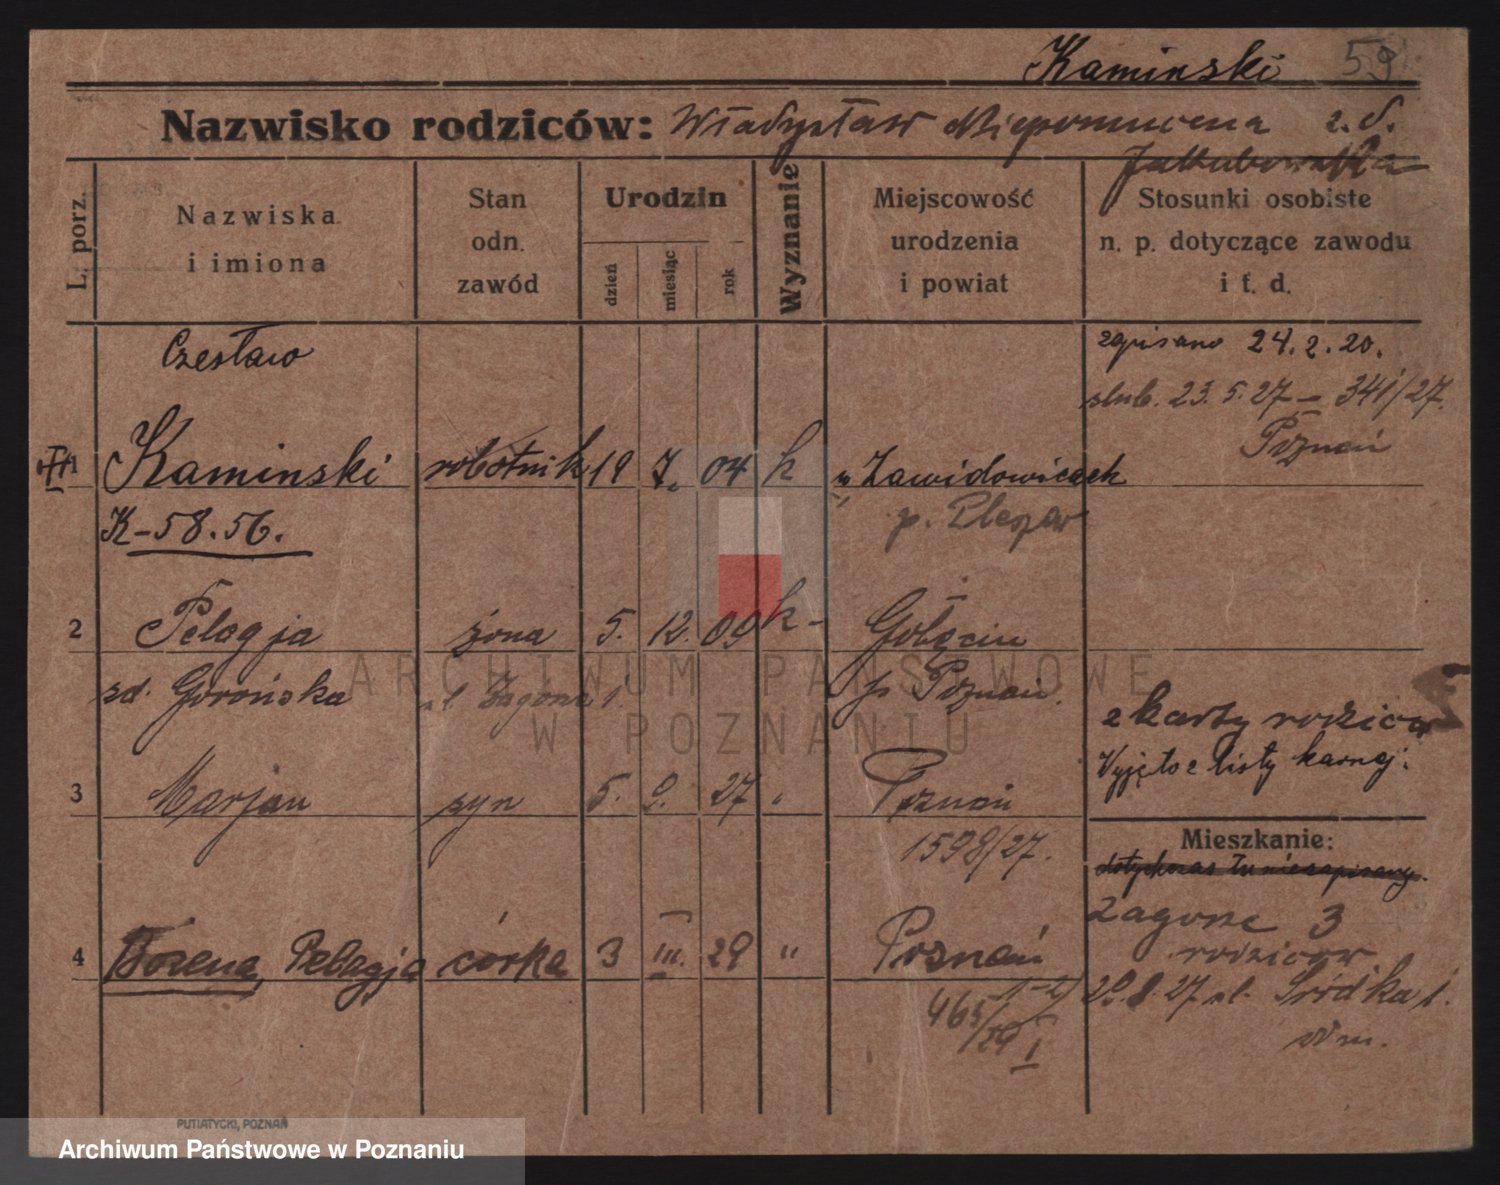 Kaminski 59
Nazwisko rodziców: Władysław Niepomucena z. d.
Jakubowska
L. porz.
Nazwiska i imiona
Stan odn. zawód
Urodzin
dzień
miesiąc
rok
Wyznanie
Miejscowość urodzenia i powiat
Stosunki osobiste n. p. dotyczące zawodu i t. d.
Czesław
zapisano 24.2.20.
ślub. 23.5.27 – 341/27.
Poznań
1 Kaminski robotnik 19 7. 04 k w Zawidowicach
K-58.56.
p. Pleszew
2 Pelagja żona 5. 12. 09 k- Gołęcin
zd. Górońska
p. Poznań.
z karty rodziców
Wyjęto z listy karnej.
3 Marjan syn 5. 2. 27 " Poznań
1598/27.
Mieszkanie:
dotychczas tu niezapisany.
Zagorze 3
rodziców
4 Bożena Pelagja córka 3 III. 29 " Poznań
29.8.27 ul. Śródka 1.
465/29 I
PUTIATYCKI, POZNAŃ
ARCHIWUM PAŃSTWOWE
W POZNANIU
Archiwum Państwowe w Poznaniu